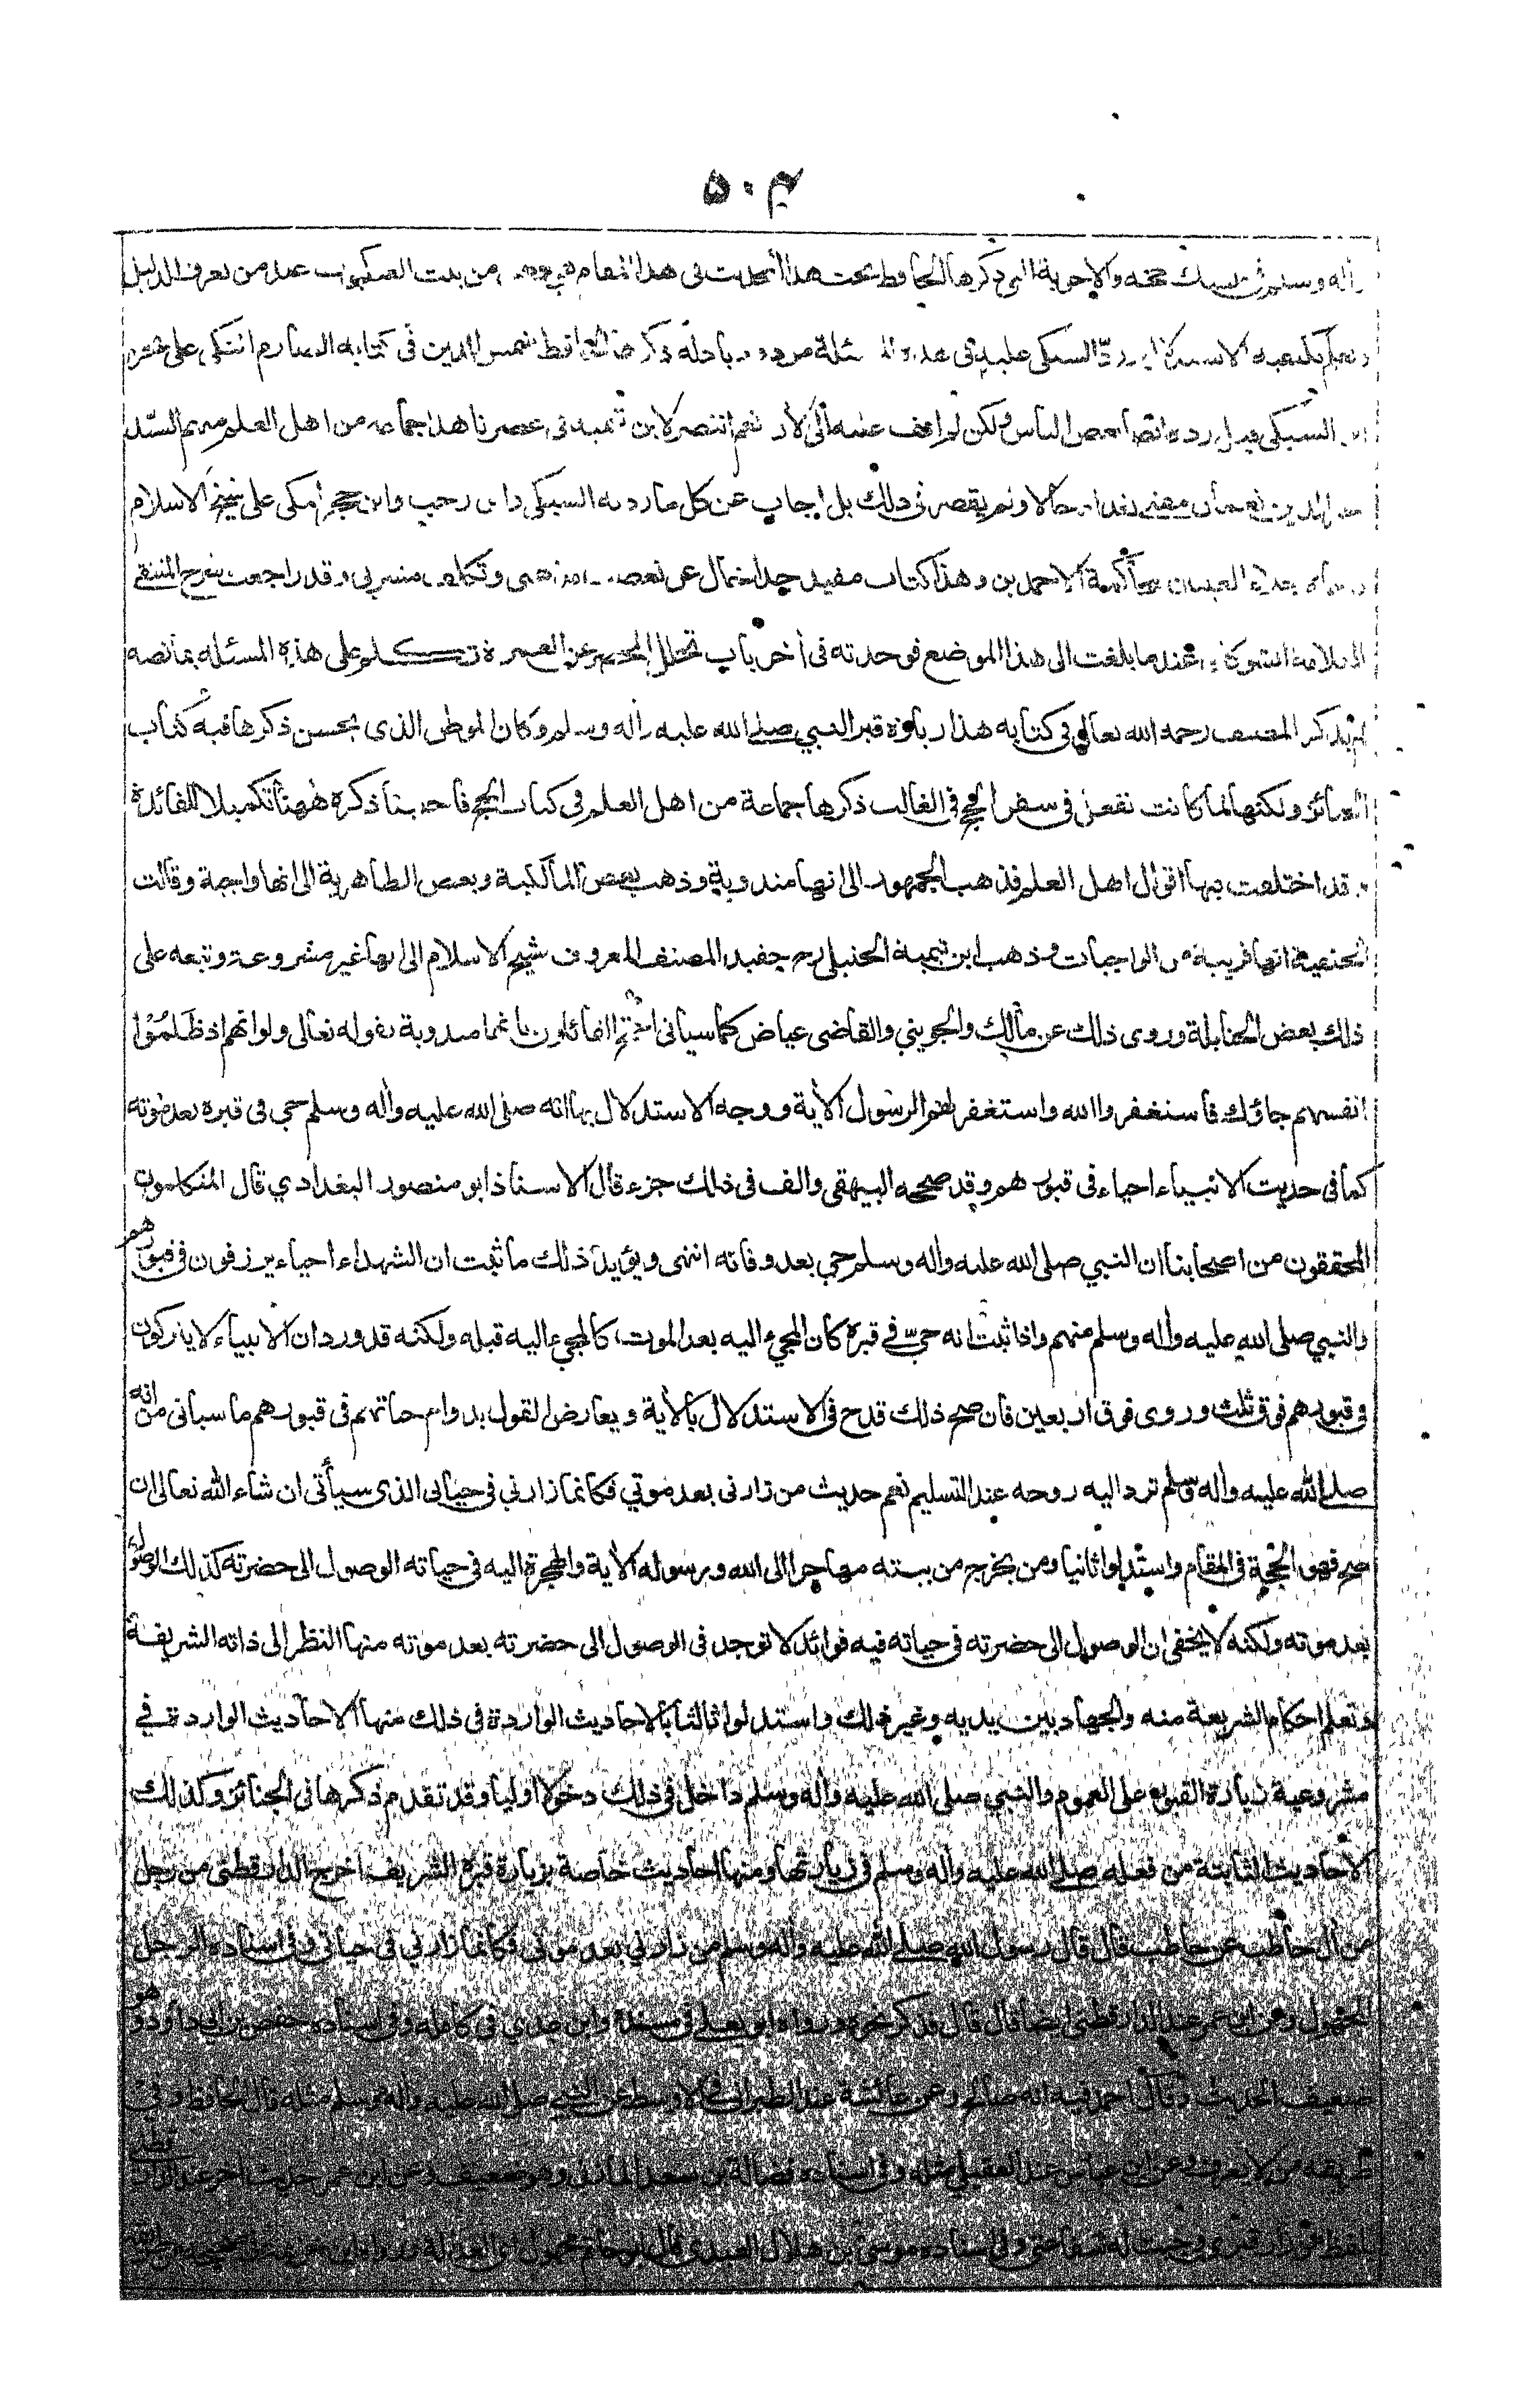 ٥٠٤
وأله وسلم هذا الحديث فى هذا المقام من بيت العنكبوت عند من يعرف الدليل
ردّ السبكى عليه فى مردود بادلة ذكرها الحافظ شمس الدين فى كتابه الصارم المنكى على نحر
السبكى رده ايضا بعض الناس ولكن لم اقف عليه الى الأن نعم انتصر لابن تيميه فى عصرنا هذا جماعه من اهل العلم منهم السيّد
مفتى بغداد حالا ولم يقصر فى ذلك بل اجاب عن كل ما رد به السبكى وابن رجب وابن حجر المكى على شيخ الاسلام
جلاء العينين بمحاكمة الاحمدين وهذا كتاب مفيد جدا خال عن تعصب مذهبى وتكلف مشربى وقد راجعت شرح المنتقى
للعلامة الشوكانى عندما بلغت الى هذا الموضع فوجدته فى أخر باب تحلل المحرم عن العمرة تكلم على هذه المسئله بما نصه
لم يذكر المصنف رحمه الله تعالى فى كتابه هذا زيارة قبر النبي صلى الله عليه وأله وسلم وكان الموطن الذى يحسن ذكرها فيه كتاب
الجنائز ولكنها لما كانت تقع فى سفر الحج فى الغالب ذكرها جماعة من اهل العلم فى كتاب الحج فاحببنا ذكره ههنا تكميلا للفائدة
وقد اختلفت فيها اقوال اهل العلم فذهب الجمهور الى انها مندوبة وذهب بعض المالكية وبعض الظاهرية الى انها واجبة وقالت
الحنفية انها قريبة من الواجبات وذهب ابن تيمية الحنبلى رح حفيد المصنف المعروف شيخ الاسلام الى انها غير مشروعة وتبعه على
ذلك بعض الحنابلة وروى ذلك عن مالك والجويني والقاضى عياض كما سيأتى احتج القائلون بانها مندوبة بقوله تعالى ولو انهم اذ ظَلَمُوْا
انفسهم جاؤك فاستغفروا الله واستغفر لهم الرسول الأية ووجه الاستدلال بها انه صلى الله عليه وأله وسلم حي فى قبره بعد موته
كما فى حديث الانبياء احياء فى قبورهم وقد صححه البيهقى والف فى ذلك جزء قال الاستاذ ابو منصور البغدادي قال المتكلمون
المحققون من اصحابنا ان النبي صلى الله عليه وأله وسلم حي بعد وفاته انتهى ويؤيد ذلك ما ثبت ان الشهداء احياء يرزقون فى قبورهم
والنبي صلى الله عليه وأله وسلم منهم واذا ثبت انه حيّ فى قبره كان المجيء اليه بعد الموت كالمجيء اليه قبله ولكنه قد ورد ان الانبياء لا يتركون
فى قبورهم فوق ثلث وروى فوق اربعين فان صح ذلك قدح فى الاستدلال بالأية ويعارض القول بدوام حياتهم فى قبورهم ما سيأتى من انه
صلى الله عليه وأله وسلم ترد اليه روحه عند التسليم نعم حديث من زارنى بعد موتي فكانما زارني في حياتى الذى سيأتى ان شاء الله تعالى ان
صح فهو الحجة فى المقام واستدلوا ثانيا ومن يخرج من بيته مهاجرا الى الله ورسوله الأية والهجرة اليه فى حياته الوصول الى حضرته كذلك الوصول
بعد موته ولكنه لا يخفى ان الوصول الى حضرته فى حياته فيه فوائد لا توجد فى الوصول الى حضرته بعد موته منها النظر الى ذاته الشريفة
وتعلم احكام الشريعة منه والجهاد بين يديه وغير ذلك واستدلوا ثالثا بالاحاديث الواردة فى ذلك منها الاحاديث الواردة في
مشروعية زيارة القبور على العموم والنبي صلى الله عليه وأله وسلم داخل فى ذلك دخولا اوليا وقد تقدم ذكرها فى الجنائز وكذلك
الاحاديث الثابتة من فعله صلى الله عليه وأله وسلم فى زيارتها ومنها احاديث خاصة بزيارة قبره الشريف اخرج الدارقطنى من رجل
من أل حاطب عن حاطب قال قال رسول الله صلى الله عليه وأله وسلم من زارني بعد موتى فكانما زارني فى حياتى وفى اسناده الرجل
المجهول وعن ابن عمر عند الدارقطنى ايضا قال قال فذكر نحوه ورواه ابو يعلى فى مسنده وابن عدى فى كامله وفى اسناده حفص بن ابى داؤد وهو
ضعيف الحديث وقال احمد فيه انه صالح وعن عائشة عند الطبرانى فى الاوسط عن النبي صلى الله عليه وأله وسلم مثله قال الحافظ وفي
طريقه من لا يعرف وعن ابن عباس عند العقيلى مثله وفى اسناده فضالة بن سعد المازنى وهو ضعيف وعن ابن عمر حديث أخر عند الدارقطنى
بلفظ من زار قبرى وجبت له شفاعتى وفى اسناده موسى بن هلال العبدى قال ابو حاتم مجهول اى العدالة